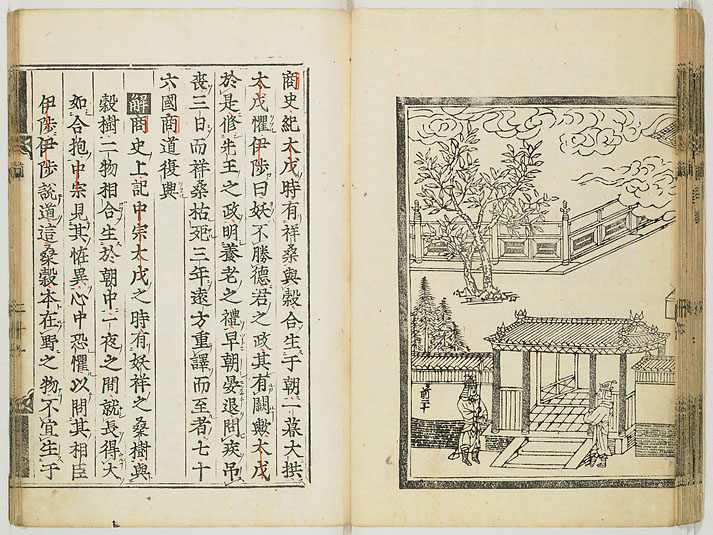 商史紀太戊時有祥桑與穀合生于朝一暮大拱
太戊懼伊陟曰妖不勝德君之政其有闕歟太戊
於是修先王之政明養老之禮早朝晏退問疾吊
喪三日而祥桑枯死三年遠方重譯而至者七十
六國商道復興
解商史上記中宗太戊之時有妖祥之桑樹與
穀樹二物相合生於朝中一夜之間就長得大
如合抱中宗見其怪異心中恐懼以問其相臣
伊陟伊陟說道這桑穀本在野之物不宜生于